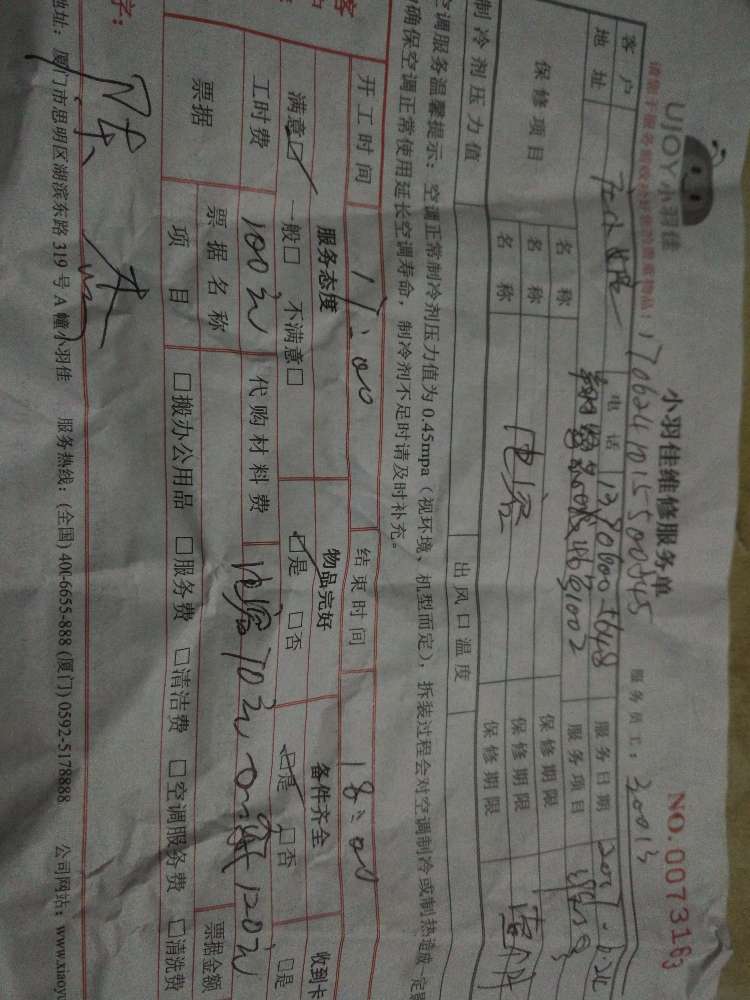 UJOY小羽佳
小羽佳维修服务单
NO.0073163
请您于服务前收好您的贵重物品：
1706241015500545
服务员工：
30013
客户
地址
电话
服务日期
服务项目
保修项目
名称
保修期限
名称
电容
保修期限
名称
保修期限
制冷剂压力值
出风口温度
空调服务温馨提示：空调正常制冷剂压力值为 0.45mpa（视环境、机型而定），拆装过程会对空调制冷或制热造成一定
确保空调正常使用延长空调寿命，制冷剂不足时请及时补充。
开工时间
17:00
结束时间
18:00
服务态度
物品完好
备件齐全
收到卡
满意☑ 一般□ 不满意□
☑是 □否
☑是 □否
□是
工时费
100元
代购材料费
电容70元
120元
票据
票据名称
票据金额
项目
□搬办公用品 □服务费 □清洁费 □空调服务费 □清洗费
字：
地址：厦门市思明区湖滨东路 319 号 A 幢小羽佳 服务热线：(全国) 400-6655-888 (厦门) 0592-5178888 公司网站：www.xiaoyu